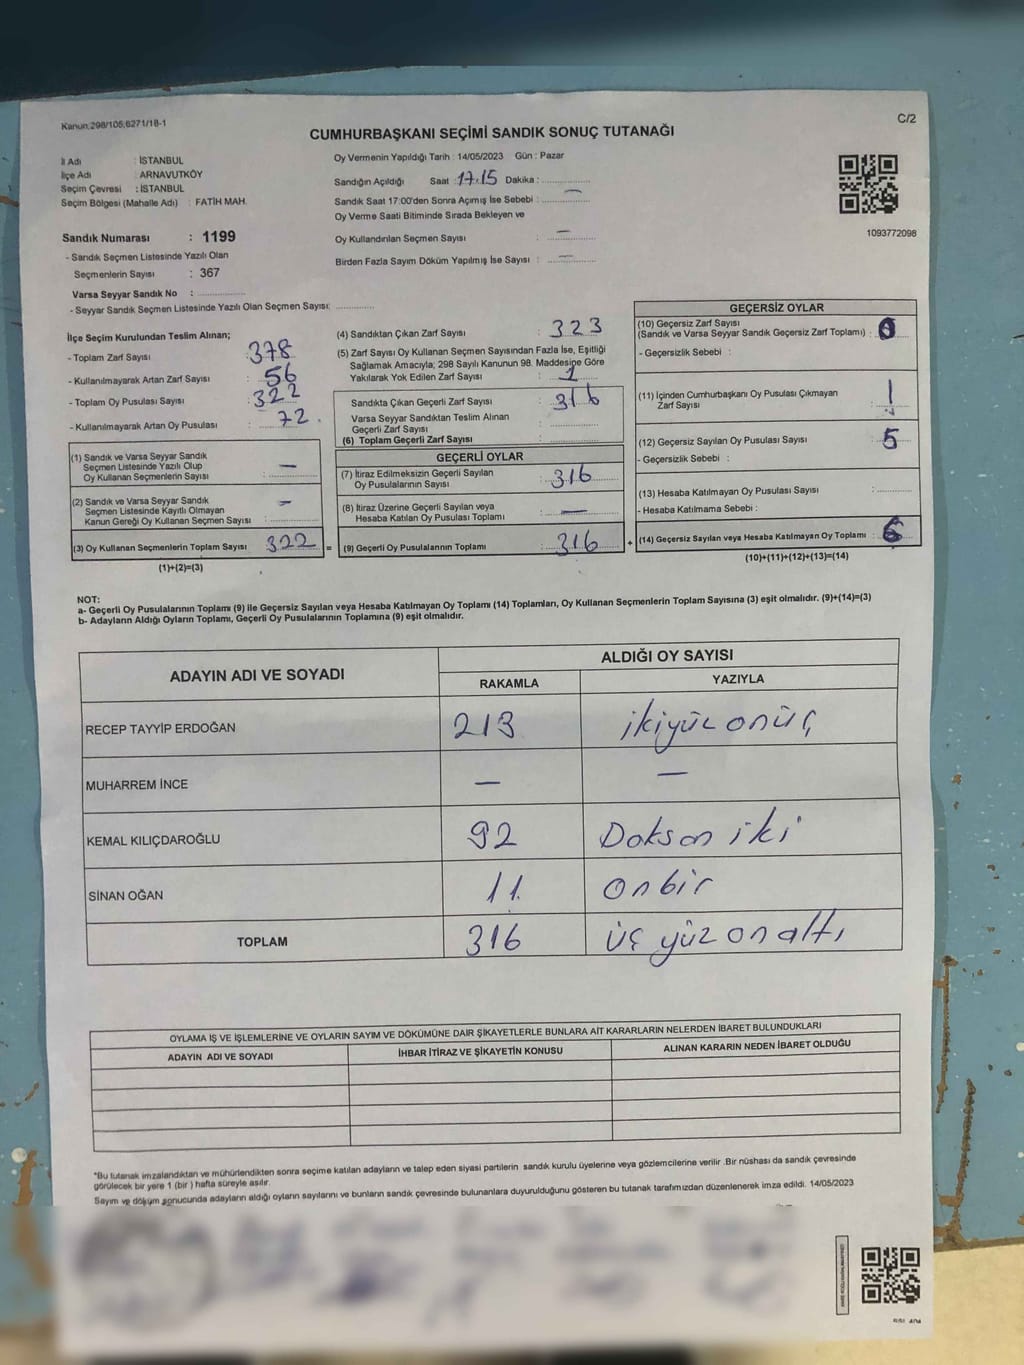 Kanun:298/105,6271/18-1
C/2
CUMHURBAŞKANI SEÇİMİ SANDIK SONUÇ TUTANAĞI
İl Adı : İSTANBUL
İlçe Adı : ARNAVUTKÖY
Seçim Çevresi : İSTANBUL
Seçim Bölgesi (Mahalle Adı) : FATİH MAH.
Oy Vermenin Yapıldığı Tarih : 14/05/2023 Gün : Pazar
Sandığın Açıldığı Saat 17.15 Dakika :
Sandık Saat 17:00'den Sonra Açımış İse Sebebi : —
Oy Verme Saati Bitiminde Sırada Bekleyen ve
Oy Kullandırılan Seçmen Sayısı : —
Birden Fazla Sayım Döküm Yapılmış İse Sayısı : —
1093772098
Sandık Numarası : 1199
- Sandık Seçmen Listesinde Yazılı Olan
Seçmenlerin Sayısı : 367
Varsa Seyyar Sandık No :
- Seyyar Sandık Seçmen Listesinde Yazılı Olan Seçmen Sayısı:
İlçe Seçim Kurulundan Teslim Alınan;
- Toplam Zarf Sayısı : 378
- Kullanılmayarak Artan Zarf Sayısı : 56
- Toplam Oy Pusulası Sayısı : 322
- Kullanılmayarak Artan Oy Pusulası : 72
(1) Sandık ve Varsa Seyyar Sandık
Seçmen Listesinde Yazılı Olup
Oy Kullanan Seçmenlerin Sayısı : —
(2) Sandık ve Varsa Seyyar Sandık
Seçmen Listesinde Kayıtlı Olmayan
Kanun Gereği Oy Kullanan Seçmen Sayısı : —
(3) Oy Kullanan Seçmenlerin Toplam Sayısı 322 =
(1)+(2)=(3)
(4) Sandıktan Çıkan Zarf Sayısı : 323
(5) Zarf Sayısı Oy Kullanan Seçmen Sayısından Fazla İse, Eşitliği
Sağlamak Amacıyla; 298 Sayılı Kanunun 98. Maddesine Göre
Yakılarak Yok Edilen Zarf Sayısı : 1
Sandıkta Çıkan Geçerli Zarf Sayısı : 316
Varsa Seyyar Sandıktan Teslim Alınan
Geçerli Zarf Sayısı :
(6) Toplam Geçerli Zarf Sayısı :
GEÇERLİ OYLAR
(7) İtiraz Edilmeksizin Geçerli Sayılan
Oy Pusulalarının Sayısı : 316
(8) İtiraz Üzerine Geçerli Sayılan veya
Hesaba Katılan Oy Pusulası Toplamı : —
(9) Geçerli Oy Pusulalarının Toplamı : 316 +
GEÇERSİZ OYLAR
(10) Geçersiz Zarf Sayısı
(Sandık ve Varsa Seyyar Sandık Geçersiz Zarf Toplamı) : 0
- Geçersizlik Sebebi :
(11) İçinden Cumhurbaşkanı Oy Pusulası Çıkmayan
Zarf Sayısı : 1
(12) Geçersiz Sayılan Oy Pusulası Sayısı : 5
- Geçersizlik Sebebi :
(13) Hesaba Katılmayan Oy Pusulası Sayısı :
- Hesaba Katılmama Sebebi :
(14) Geçersiz Sayılan veya Hesaba Katılmayan Oy Toplamı : 6
(10)+(11)+(12)+(13)=(14)
NOT:
a- Geçerli Oy Pusulalarının Toplamı (9) ile Geçersiz Sayılan veya Hesaba Katılmayan Oy Toplamı (14) Toplamları, Oy Kullanan Seçmenlerin Toplam Sayısına (3) eşit olmalıdır. (9)+(14)=(3)
b- Adayların Aldığı Oyların Toplamı, Geçerli Oy Pusulalarının Toplamına (9) eşit olmalıdır.
ADAYIN ADI VE SOYADI
ALDIĞI OY SAYISI
RAKAMLA YAZIYLA
RECEP TAYYİP ERDOĞAN 213 ikiyüz onüç
MUHARREM İNCE — —
KEMAL KILIÇDAROĞLU 92 Doksan iki
SİNAN OĞAN 11. onbir
TOPLAM 316 üç yüz on altı
OYLAMA İŞ VE İŞLEMLERİNE VE OYLARIN SAYIM VE DÖKÜMÜNE DAİR ŞİKAYETLERLE BUNLARA AİT KARARLARIN NELERDEN İBARET BULUNDUKLARI
ADAYIN ADI VE SOYADI İHBAR İTİRAZ VE ŞİKAYETİN KONUSU ALINAN KARARIN NEDEN İBARET OLDUĞU
"Bu tutanak imzalandıktan ve mühürlendikten sonra seçime katılan adayların ve talep eden siyasi partilerin sandık kurulu üyelerine veya gözlemcilerine verilir .Bir nüshası da sandık çevresinde
görülecek bir yere 1 (bir ) hafta süreyle asılır.
Sayım ve döküm sonucunda adayların aldığı oyların sayılarını ve bunların sandık çevresinde bulunanlara duyurulduğunu gösteren bu tutanak tarafımızdan düzenlenerek imza edildi. 14/05/2023